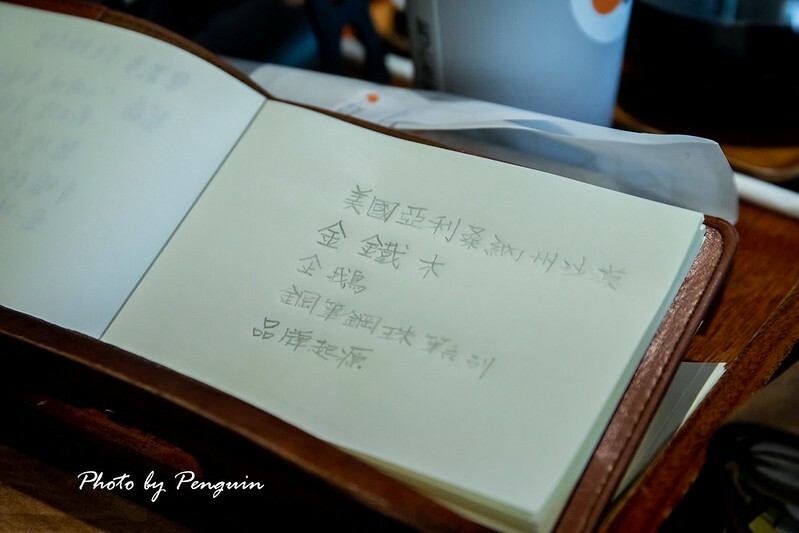 美國亞利桑納州沙漠
金鐵木
企鵝
鋼筆鋼珠筆系列
品牌起源
Photo by Penguin